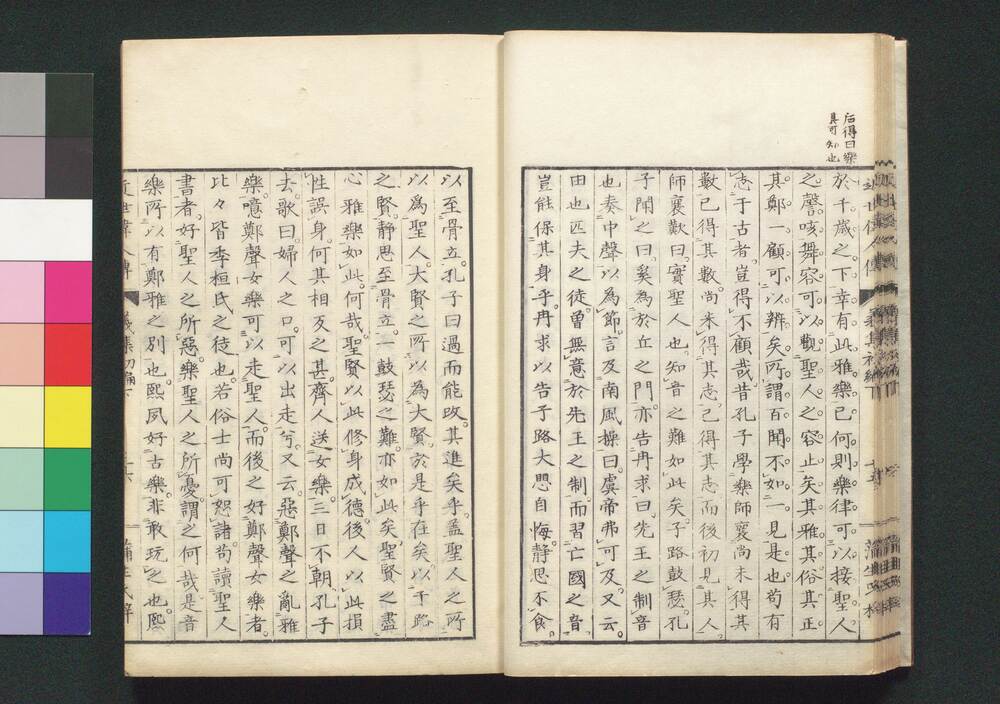 后得曰樂
具可知也
於千歳之下幸有此雅樂已何則樂律可以接聖人
之謦咳舞容可以觀聖人之容止矣其雅其俗其正
其鄭一顧可以辨矣所謂百聞不如一見是也苟有
志于古者豈得不顧哉昔孔子學樂師襄尚未得其
數已得其數尚未得其志已得其志而後初見其人
師襄歎曰實聖人也知音之難如此矣子路鼓瑟孔
子聞之曰奚為於丘之門亦告冉求曰先王之制音
也奏中聲以為節言及南風操曰虞帝弗可及又云
由也匹夫之徒曽無意於先王之制而習亡國之音
豈能保其身乎冉求以告子路大思自悔静思不食
以至骨立孔子曰過而能改其進矣乎盖聖人之所
以為聖人大賢之所以為大賢於是乎在矣以子路
之賢静思至骨立一鼓瑟之難亦如此矣聖賢之盡
心雅樂如此何哉聖賢以此修身成德後人以此損
性誤身何其相反之甚齊人送女樂三日不朝孔子
去歌曰婦人之口可以出走兮又云惡鄭聲之亂雅
樂噫鄭聲女樂可以走聖人而後之好鄭聲女樂者
比々皆季桓氏之徒也若俗士尚可恕諸苟讀聖人
書者好聖人之所惡樂聖人之所憂謂之何哉是音
樂所以有鄭雅之別也熙夙好古樂非敢玩之也熙